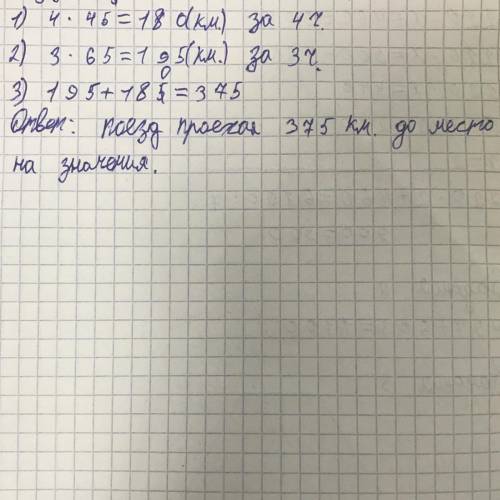 1) 4 · 45 = 180(км) за 4ч.
2) 3 · 65 = 195(км.) за 3ч.
3) 195 + 180 = 375
Ответ: поезд проехал 375 км. до место
на значения.